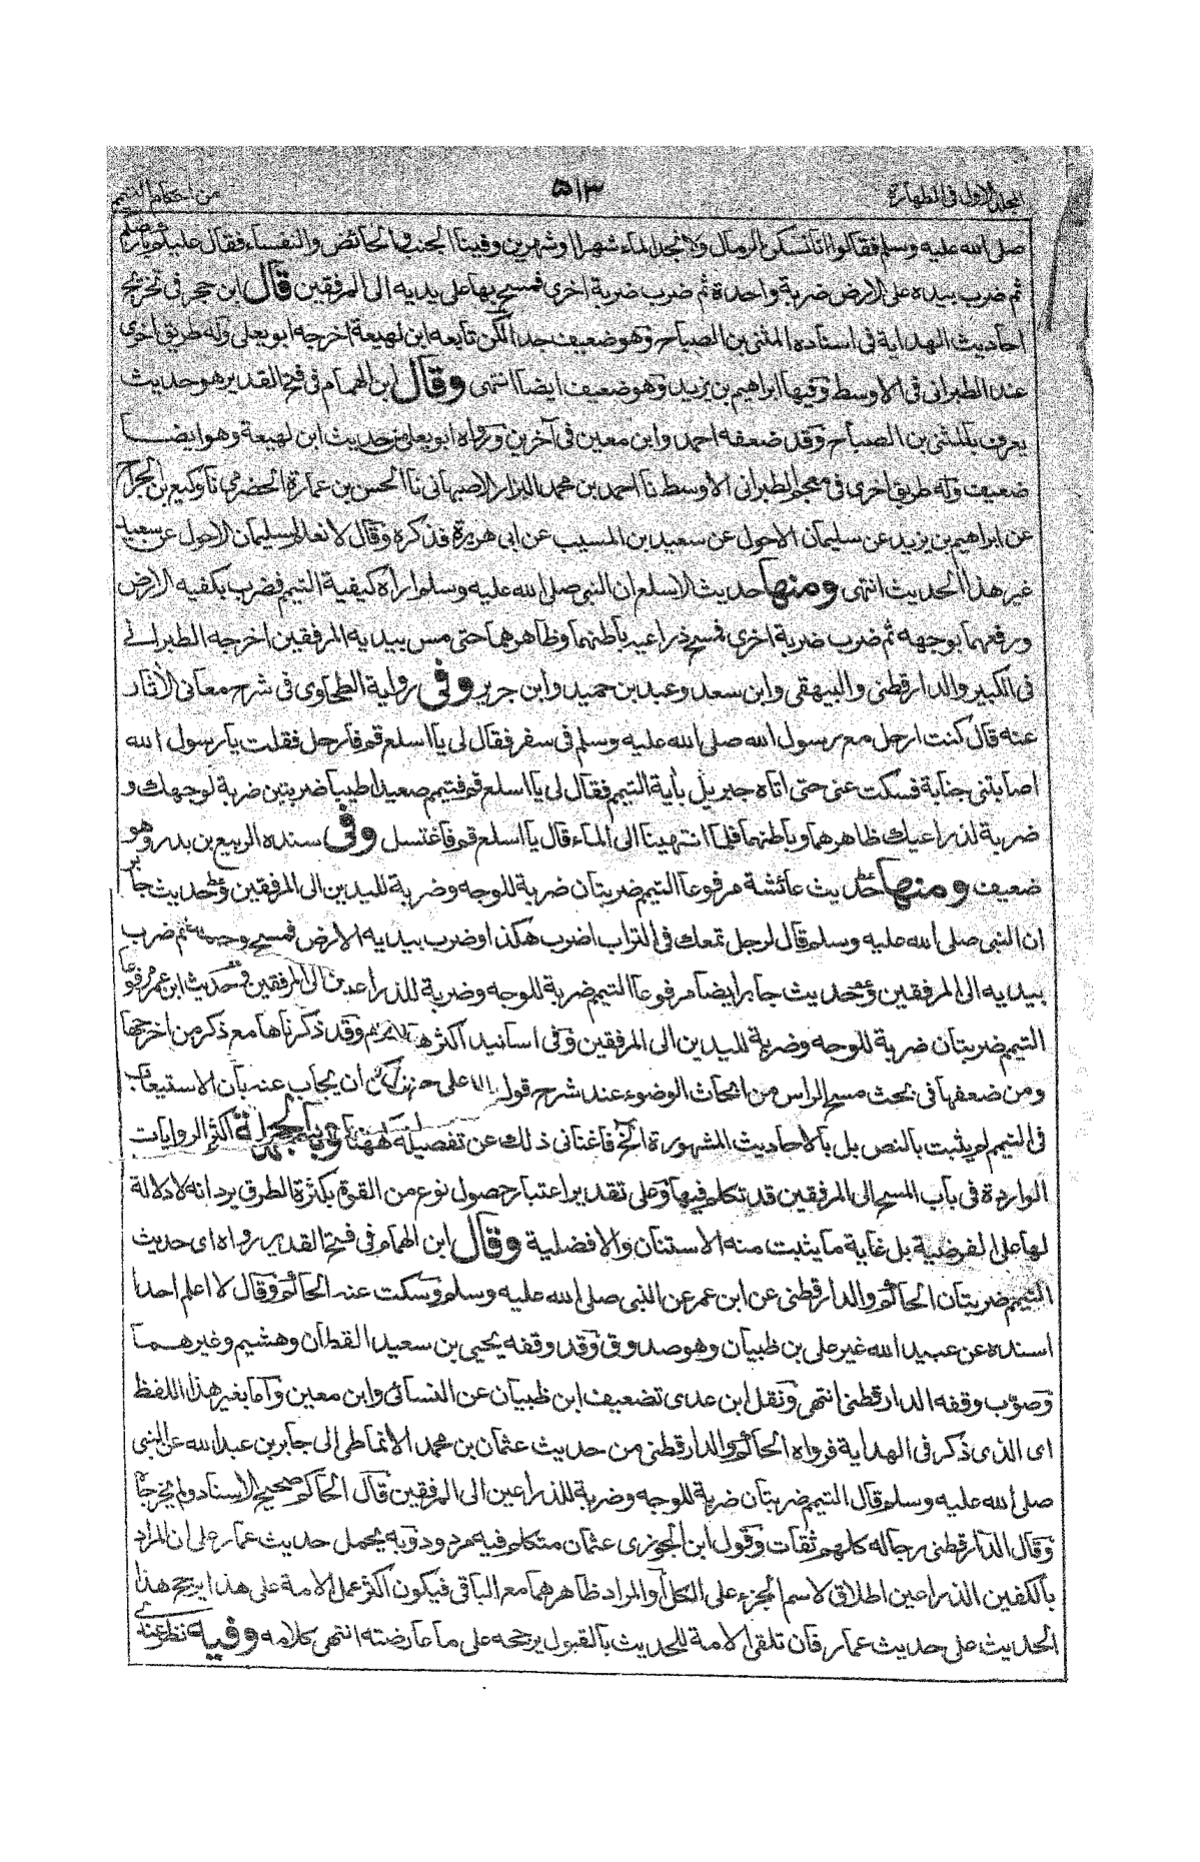 المجلد الاول فى الطهارة ٥١٣ من احكام التيمم
صلى الله عليه وسلم فقالوا انا نسكن الرمال ولا نجد الماء شهرا او شهرين وفينا الجنب والحائض والنفساء فقال عليكم بارضكم
ثم ضرب بيده على الارض ضربة واحدة ثم ضرب ضربة اخرى فمسح بها على يديه الى المرفقين قال ابن حجر فى تخريج
احاديث الهداية فى اسناده المثنى بن الصباح وهو ضعيف جدا لكن تابعه ابن لهيعة اخرجه ابو يعلى وله طريق اخرى
عند الطبرانى فى الاوسط وفيها ابراهيم بن يزيد وهو ضعيف ايضا انتهى وقال ابن الهمام فى فتح القدير هو حديث
يعرف بالمثنى بن الصباح وقد ضعفه احمد وابن معين فى آخرين ورواه ابو يعلى من حديث ابن لهيعة وهو ايضا
ضعيف وله طريق اخرى فى معجم الطبرانى الاوسط نا احمد بن محمد البزار الاصبهانى نا الحسن بن عمارة الحضرمى نا وكيع بن الجراح
عن ابراهيم بن يزيد عن سليمان الاحول عن سعيد بن المسيب عن ابى هريرة فذكره وقال لا نعلم لسليمان الاحول عن سعيد
غير هذا الحديث انتهى ومنها حديث الاسلع ان النبى صلى الله عليه وسلم اراه كيفية التيمم فضرب بكفيه الارض
ورفعهما بوجهه ثم ضرب ضربة اخرى فمسح ذراعيه باطنهما وظاهرهما حتى مس بيديه المرفقين اخرجه الطبرانى
فى الكبير والدارقطنى والبيهقى وابن سعد وعبد بن حميد وابن جرير وفى رواية الطحاوى فى شرح معانى الآثار
عنه قال كنت ارحل مع رسول الله صلى الله عليه وسلم فى سفر فقال لى يا اسلع قم فارحل فقلت يا رسول الله
اصابتنى جنابة فسكت عنى حتى اتاه جبريل بآية التيمم فقال لى يا اسلع قم فتيمم صعيدا طيبا ضربتين ضربة لوجهك و
ضربة لذراعيك ظاهرهما وباطنهما فلما انتهينا الى الماء قال يا اسلع قم فاغتسل وفى سنده الربيع بن بدر وهو
ضعيف ومنها حديث عائشة مرفوعا التيمم ضربتان ضربة للوجه وضربة لليدين الى المرفقين وحديث جابر
ان النبى صلى الله عليه وسلم قال لرجل تمعك فى التراب اضرب هكذا وضرب بيديه الارض فمسح وجهه ثم ضرب
بيديه الى المرفقين وحديث جابر ايضا مرفوعا التيمم ضربة للوجه وضربة للذراعين الى المرفقين وحديث ابن عمر مرفوعا
التيمم ضربتان ضربة للوجه وضربة لليدين الى المرفقين وفى اسانيد اكثرها وقد ذكرناها مع ذكر من اخرجها
ومن ضعفها فى بحث مسح الراس من ابحاث الوضوء عند شرح قول ان يجاب عنه بان الاستيعاب
فى التيمم لم يثبت بالنص بل بالاحاديث المشهورة الخ فاغنانى ذلك عن تفصيله ههنا وبالجملة اكثر الروايات
الواردة فى باب المسح الى المرفقين قد تكلم فيها وعلى تقدير اعتبار حصول نوع من القوة بكثرة الطرق يرد انه لا دلالة
لها على الفرضية بل غاية ما يثبت منه الاستنان والافضلية وقال ابن الهمام فى فتح القدير رواه اى حديث
التيمم ضربتان الحاكم والدارقطنى عن ابن عمر عن النبى صلى الله عليه وسلم وسكت عنه الحاكم وقال لا اعلم احدا
اسنده عن عبيد الله غير على بن ظبيان وهو صدوق وقد وقفه يحيى بن سعيد القطان وهشيم وغيرهما
وصوب وقفه الدارقطنى انتهى ونقل ابن عدى تضعيف ابن ظبيان عن النسائى وابن معين واما بغير هذا اللفظ
اى الذى ذكر فى الهداية فرواه الحاكم والدارقطنى من حديث عثمان بن محمد الانماطى الى جابر بن عبد الله عن النبى
صلى الله عليه وسلم قال التيمم ضربتان ضربة للوجه وضربة للذراعين الى المرفقين قال الحاكم صحيح الاسناد ولم يخرجاه
وقال الدارقطنى رجاله كلهم ثقات وقول ابن الجوزى عثمان متكلم فيه مردود وبه يحمل حديث عمار على ان المراد
بالكفين الذراعين اطلاق لاسم الجزء على الكل او المراد ظاهرهما مع الباقى فيكون اكثر عمل الامة على هذا يرجح هذا
الحديث على حديث عمار فان تلقى الامة للحديث بالقبول يرجحه على ما عارضته انتهى كلامه وفيه نظر عندى